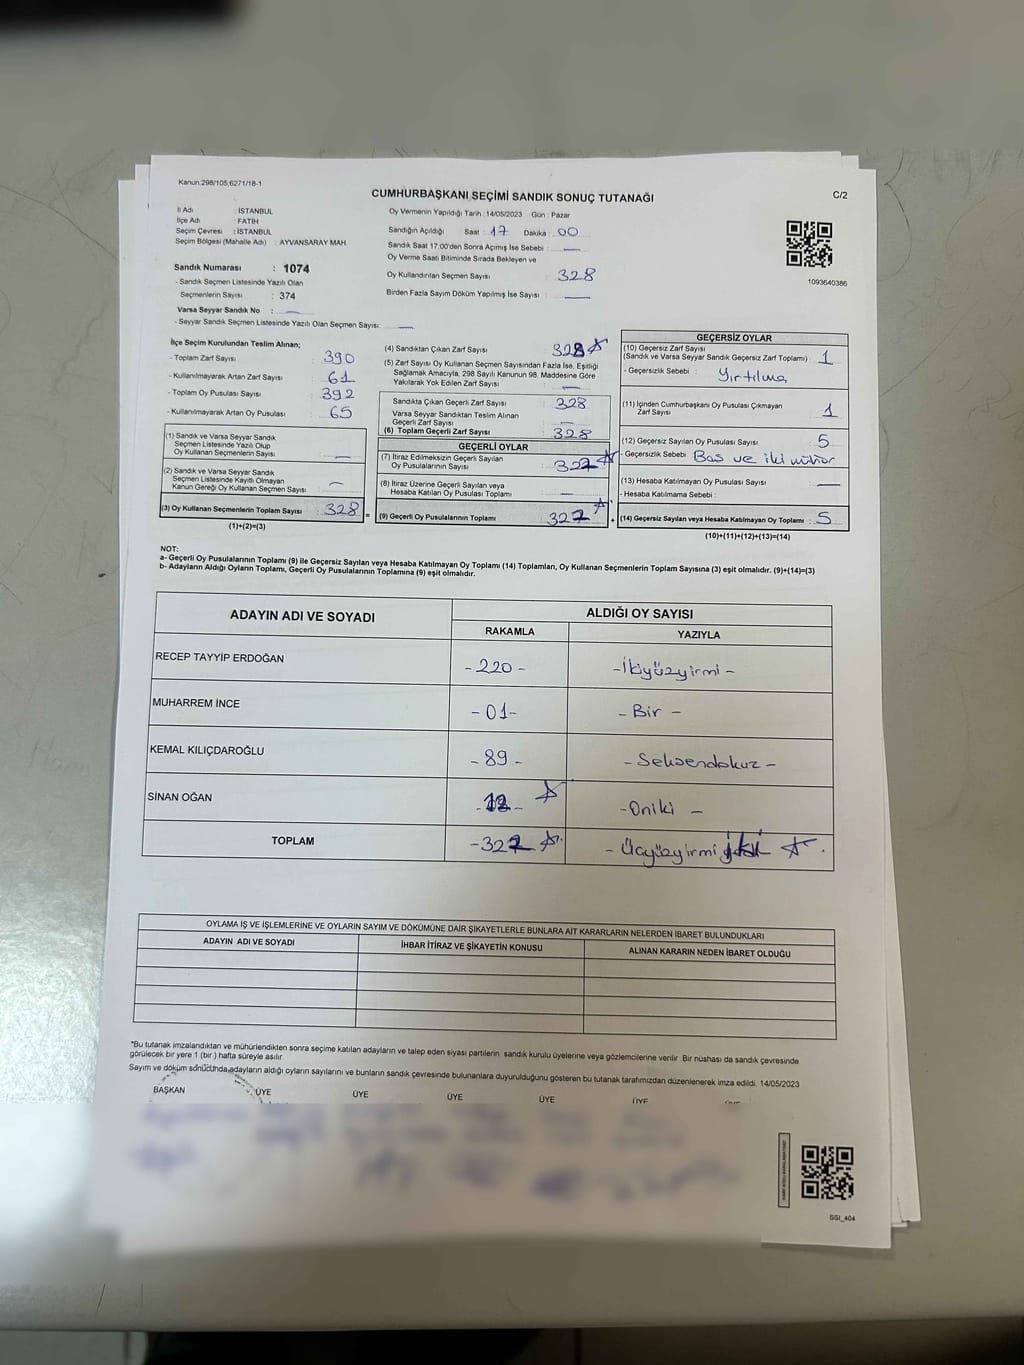 Kanun:298/105,6271/18-1
CUMHURBAŞKANI SEÇİMİ SANDIK SONUÇ TUTANAĞI
C/2
İl Adı : İSTANBUL
İlçe Adı : FATİH
Seçim Çevresi : İSTANBUL
Seçim Bölgesi (Mahalle Adı) : AYVANSARAY MAH.
Sandık Numarası : 1074
- Sandık Seçmen Listesinde Yazılı Olan
Seçmenlerin Sayısı : 374
Varsa Seyyar Sandık No : —
- Seyyar Sandık Seçmen Listesinde Yazılı Olan Seçmen Sayısı: —
Oy Vermenin Yapıldığı Tarih : 14/05/2023 Gün : Pazar
Sandığın Açıldığı Saat : 17 Dakika : 00
Sandık Saat 17:00'den Sonra Açımış İse Sebebi : —
Oy Verme Saati Bitiminde Sırada Bekleyen ve
Oy Kullandırılan Seçmen Sayısı : 328
Birden Fazla Sayım Döküm Yapılmış İse Sayısı : —
1093640386
İlçe Seçim Kurulundan Teslim Alınan;
- Toplam Zarf Sayısı : 390
- Kullanılmayarak Artan Zarf Sayısı : 61
- Toplam Oy Pusulası Sayısı : 392
- Kullanılmayarak Artan Oy Pusulası : 65
(1) Sandık ve Varsa Seyyar Sandık
Seçmen Listesinde Yazılı Olup
Oy Kullanan Seçmenlerin Sayısı : —
(2) Sandık ve Varsa Seyyar Sandık
Seçmen Listesinde Kayıtlı Olmayan
Kanun Gereği Oy Kullanan Seçmen Sayısı : —
(3) Oy Kullanan Seçmenlerin Toplam Sayısı : 328
(1)+(2)=(3)
=
(4) Sandıktan Çıkan Zarf Sayısı : 328 ☆
(5) Zarf Sayısı Oy Kullanan Seçmen Sayısından Fazla İse, Eşitliği
Sağlamak Amacıyla, 298 Sayılı Kanunun 98. Maddesine Göre
Yakılarak Yok Edilen Zarf Sayısı : —
Sandıkta Çıkan Geçerli Zarf Sayısı : 328
Varsa Seyyar Sandıktan Teslim Alınan
Geçerli Zarf Sayısı : —
(6) Toplam Geçerli Zarf Sayısı : 328
GEÇERLİ OYLAR
(7) İtiraz Edilmeksizin Geçerli Sayılan
Oy Pusulalarının Sayısı : 322 ☆
(8) İtiraz Üzerine Geçerli Sayılan veya
Hesaba Katılan Oy Pusulası Toplamı : —
(9) Geçerli Oy Pusulalarının Toplamı : 322 ☆
+
GEÇERSİZ OYLAR
(10) Geçersiz Zarf Sayısı
(Sandık ve Varsa Seyyar Sandık Geçersiz Zarf Toplamı) : 1
- Geçersizlik Sebebi : Yırtılma
(11) İçinden Cumhurbaşkanı Oy Pusulası Çıkmayan
Zarf Sayısı : 1
(12) Geçersiz Sayılan Oy Pusulası Sayısı : 5
- Geçersizlik Sebebi : Boş ve iki mühür
(13) Hesaba Katılmayan Oy Pusulası Sayısı : —
- Hesaba Katılmama Sebebi :
(14) Geçersiz Sayılan veya Hesaba Katılmayan Oy Toplamı : 5
(10)+(11)+(12)+(13)=(14)
NOT:
a- Geçerli Oy Pusulalarının Toplamı (9) ile Geçersiz Sayılan veya Hesaba Katılmayan Oy Toplamı (14) Toplamları, Oy Kullanan Seçmenlerin Toplam Sayısına (3) eşit olmalıdır. (9)+(14)=(3)
b- Adayların Aldığı Oyların Toplamı, Geçerli Oy Pusulalarının Toplamına (9) eşit olmalıdır.
ADAYIN ADI VE SOYADI ALDIĞI OY SAYISI
RAKAMLA YAZIYLA
RECEP TAYYİP ERDOĞAN -220- -İkiyüzyirmi-
MUHARREM İNCE -01- -Bir-
KEMAL KILIÇDAROĞLU -89- -Seksendokuz-
SİNAN OĞAN -12- ☆ -Oniki-
TOPLAM -322 ☆. -Üçyüzyirmi iki ☆.
OYLAMA İŞ VE İŞLEMLERİNE VE OYLARIN SAYIM VE DÖKÜMÜNE DAİR ŞİKAYETLERLE BUNLARA AİT KARARLARIN NELERDEN İBARET BULUNDUKLARI
ADAYIN ADI VE SOYADI İHBAR İTİRAZ VE ŞİKAYETİN KONUSU ALINAN KARARIN NEDEN İBARET OLDUĞU
*Bu tutanak imzalandıktan ve mühürlendikten sonra seçime katılan adayların ve talep eden siyasi partilerin sandık kurulu üyelerine veya gözlemcilerine verilir. Bir nüshası da sandık çevresinde
görülecek bir yere 1 (bir ) hafta süreyle asılır.
Sayım ve döküm sonucunda adayların aldığı oyların sayılarını ve bunların sandık çevresinde bulunanlara duyurulduğunu gösteren bu tutanak tarafımızdan düzenlenerek imza edildi. 14/05/2023
BAŞKAN ÜYE ÜYE ÜYE ÜYE ÜYE
SSI_404